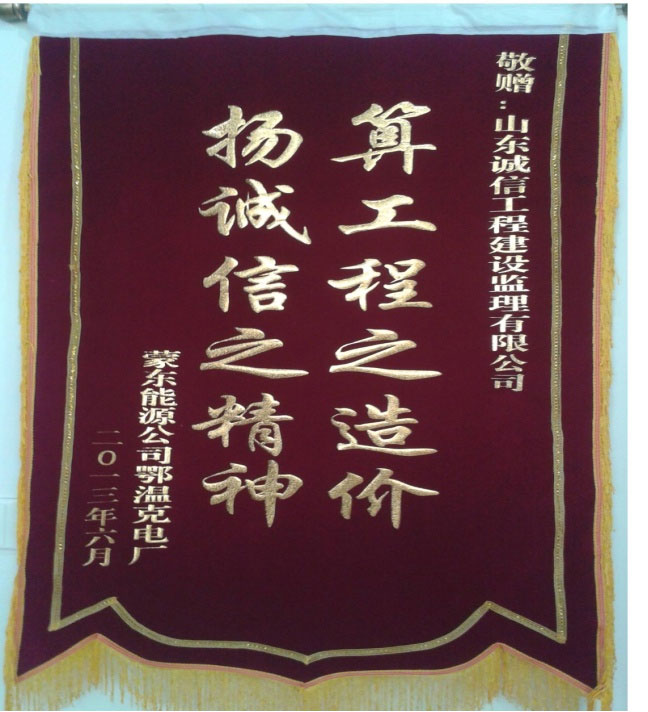 敬赠：山东诚信工程建设监理有限公司
算工程之造价
扬诚信之精神
蒙东能源公司鄂温克电厂
二〇一三年六月